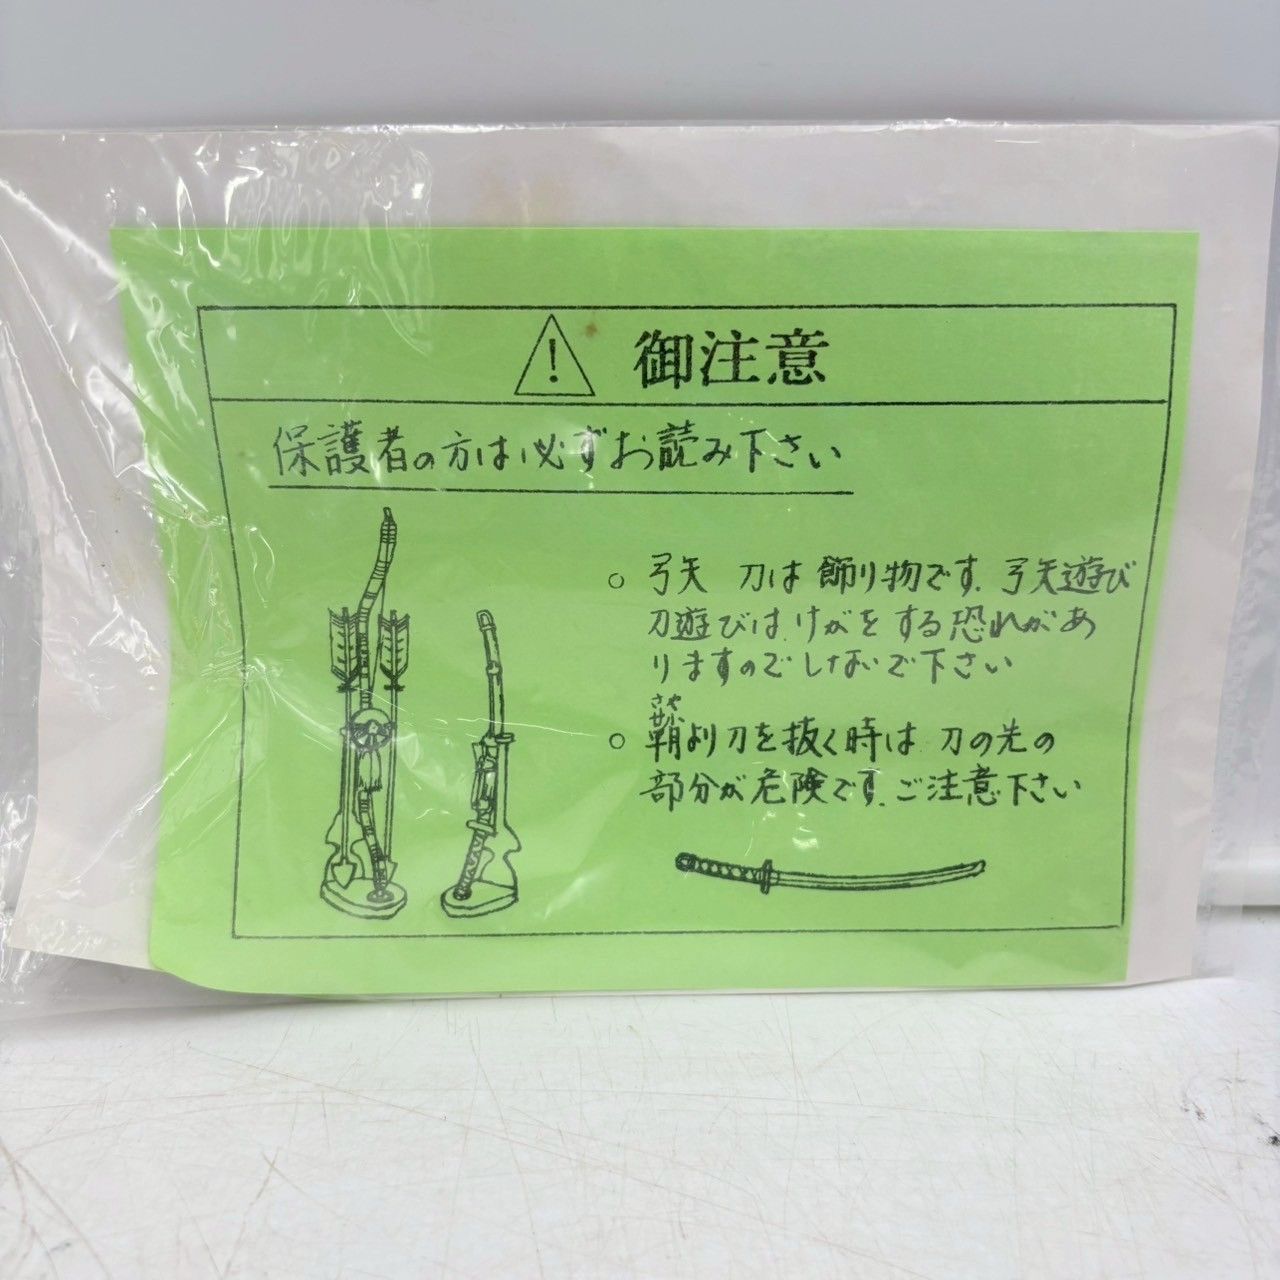 ! 御注意
保護者の方は必ずお読み下さい
○ 弓矢 刀は飾り物です.弓矢遊び
刀遊びは.けがをする恐れがあ
りますのでしないで下さい
さや
○ 鞘より刀を抜く時は 刀の先の
部分が危険です.ご注意下さい